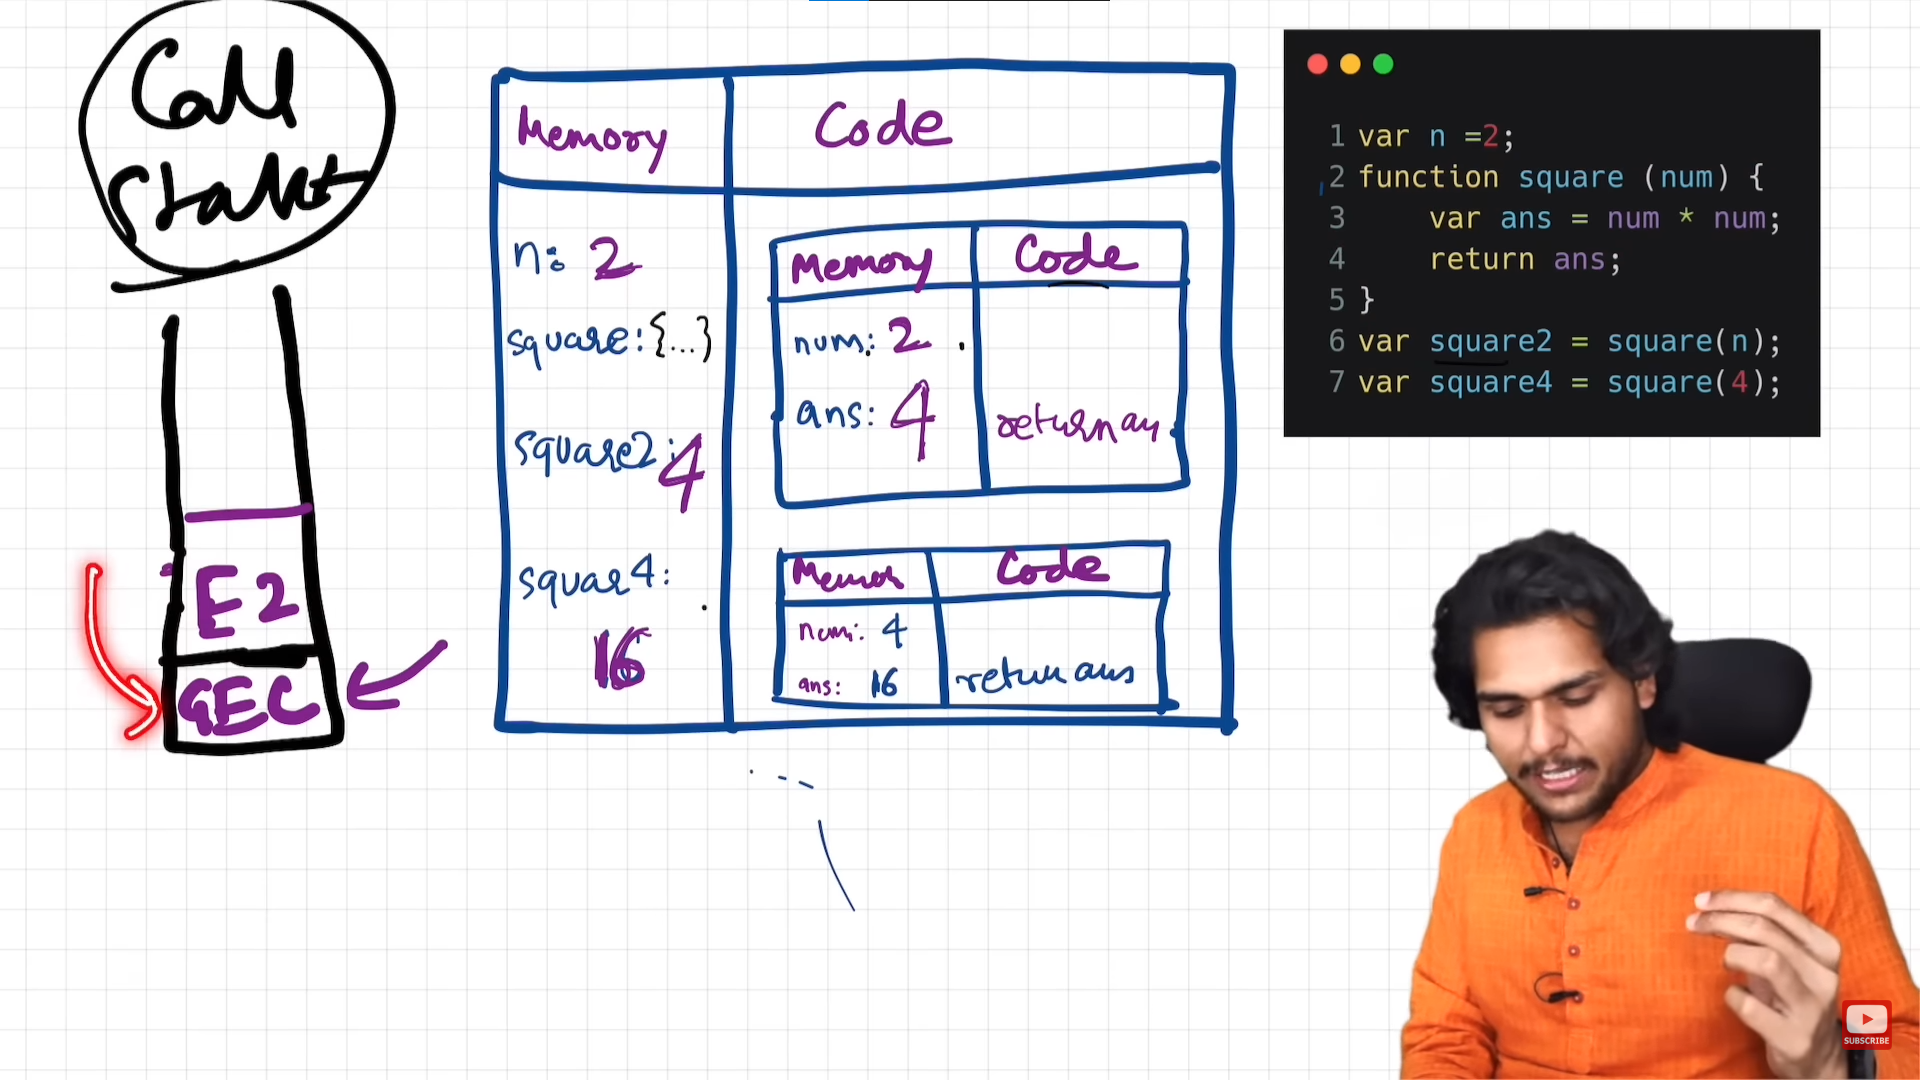 Call
Stakt
E2
GEC
Memory Code
n: 2
square: {...}
square2: 4
squar4:
16
Memory Code
num: 2
ans: 4
return an
Code
num: 4
ans: 16
return ans
1 var n =2;
2 function square (num) {
3 var ans = num * num;
4 return ans;
5 }
6 var square2 = square(n);
7 var square4 = square(4);
SUBSCRIBE